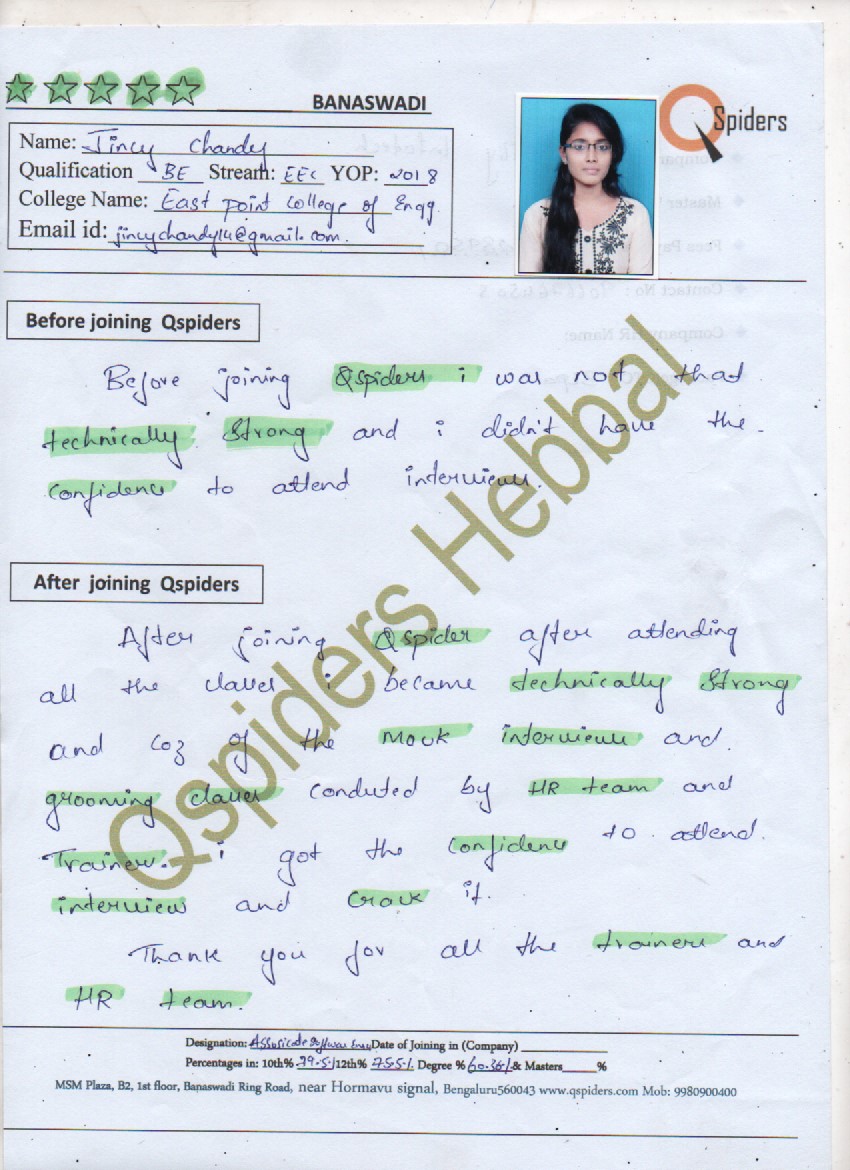 BANASWADI
QSpiders
Name: Jincy Chandy
Qualification BE Stream: EEE YOP: 2018
College Name: East point College of Engg.
Email id: jincychandy14@gmail.com.
Before joining Qspiders
Before joining Qspiders i was not that
technically Strong and i didn't have the
Confidence to attend interviews.
After joining Qspiders
After joining Qspider after attending
all the classes i became technically Strong
and coz of the Mock interviews and
grooming classes conducted by HR team and
Trainers. i got the Confidence to attend
interview and Crack it.
Thank you for all the trainers and
HR team.
Designation: Date of Joining in (Company)
Percentages in: 10th% 79.5% 12th% 75.5% Degree % 60.36% & Masters %
MSM Plaza, B2, 1st floor, Banaswadi Ring Road, near Hormavu signal, Bengaluru560043 www.qspiders.com Mob: 9980900400
Qspiders Hebbal